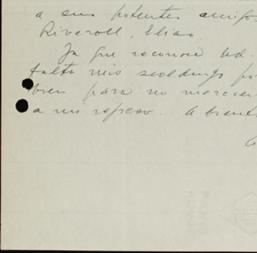 a sus potentes amigo
Riveroll, Elias.
Ya que reconoce Ud.
falta mis
bien para no merecer
a mi regreso. A